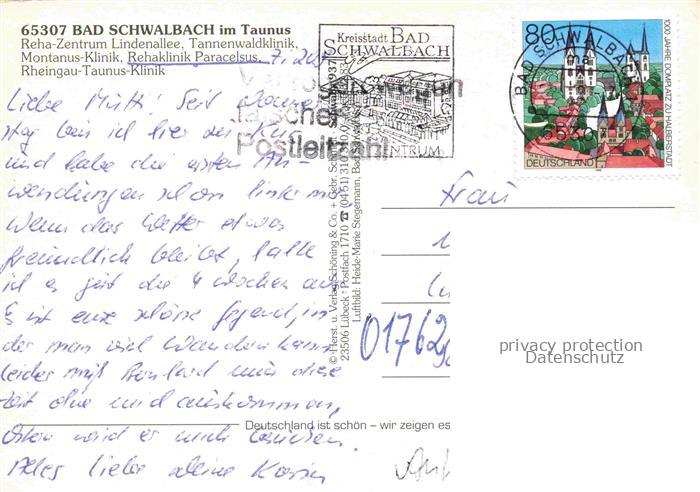 65307 BAD SCHWALBACH im Taunus
Reha-Zentrum Lindenallee, Tannenwaldklinik,
Montanus-Klinik, Rehaklinik Paracelsus,
Rheingau-Taunus-Klinik
Kreisstadt BAD
SCHWALBACH
falscher
Postleitzahl
ZENTRUM
80
BAD SCHWALBACH
DEUTSCHLAND
1000 JAHRE DOMPLATZ ZU HALBERSTADT
Liebe Mutti! Seit
bin ich hier zur Kur
und habe die ersten An-
wendungen schon hinter mir
Wenn das Wetter etwas
freundlich bleibt, halte
ich es gut die 4 Wochen aus
Es ist eine schöne Gegend, in
der man viel wandern kann
leider muß Bernhard diese
Zeit ohne mich auskommen,
Ostern wird er mich besuchen.
Alles Liebe deine Karin
Frau
01762
© Herst. u. Verlag Schöning & Co. + Gebr.
23506 Lübeck · Postfach 1710 ☎ (0451) 310
Luftbild: Heide-Marie Stegemann, Bad
Deutschland ist schön – wir zeigen es
privacy protection
Datenschutz